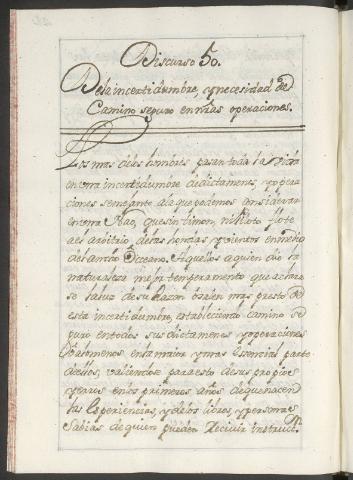 Discurso 50.
De la incertidumbre, y necesidad de
Camino seguro en nr̃as operaciones.
Los mas de los hombres pasan toda la vida
en una incertidumbre de dictamens, y opera
ciones semejante a la que podemos considerar
en una Nao, que sin timon, ni Piloto flote
a el arbitrio de las hondas y vientos en medio
del ancho Occeano. Aquellos a quien dio la
naturaleza mejor temperamento que aclara
se la luz de su Razon salen mas presto de
esta incertidumbre, estableciendo camino se
guro en todos sus dictamenes y operaciones
ò alomenos en la maior y mas esencial parte
de ellos, valiendose para esto de sus propios
yerros en los primeros años de que nacen
las Experiencias, y de los libros, y personas
Sabias de quien pueden Recivir instrucc.ⁿ